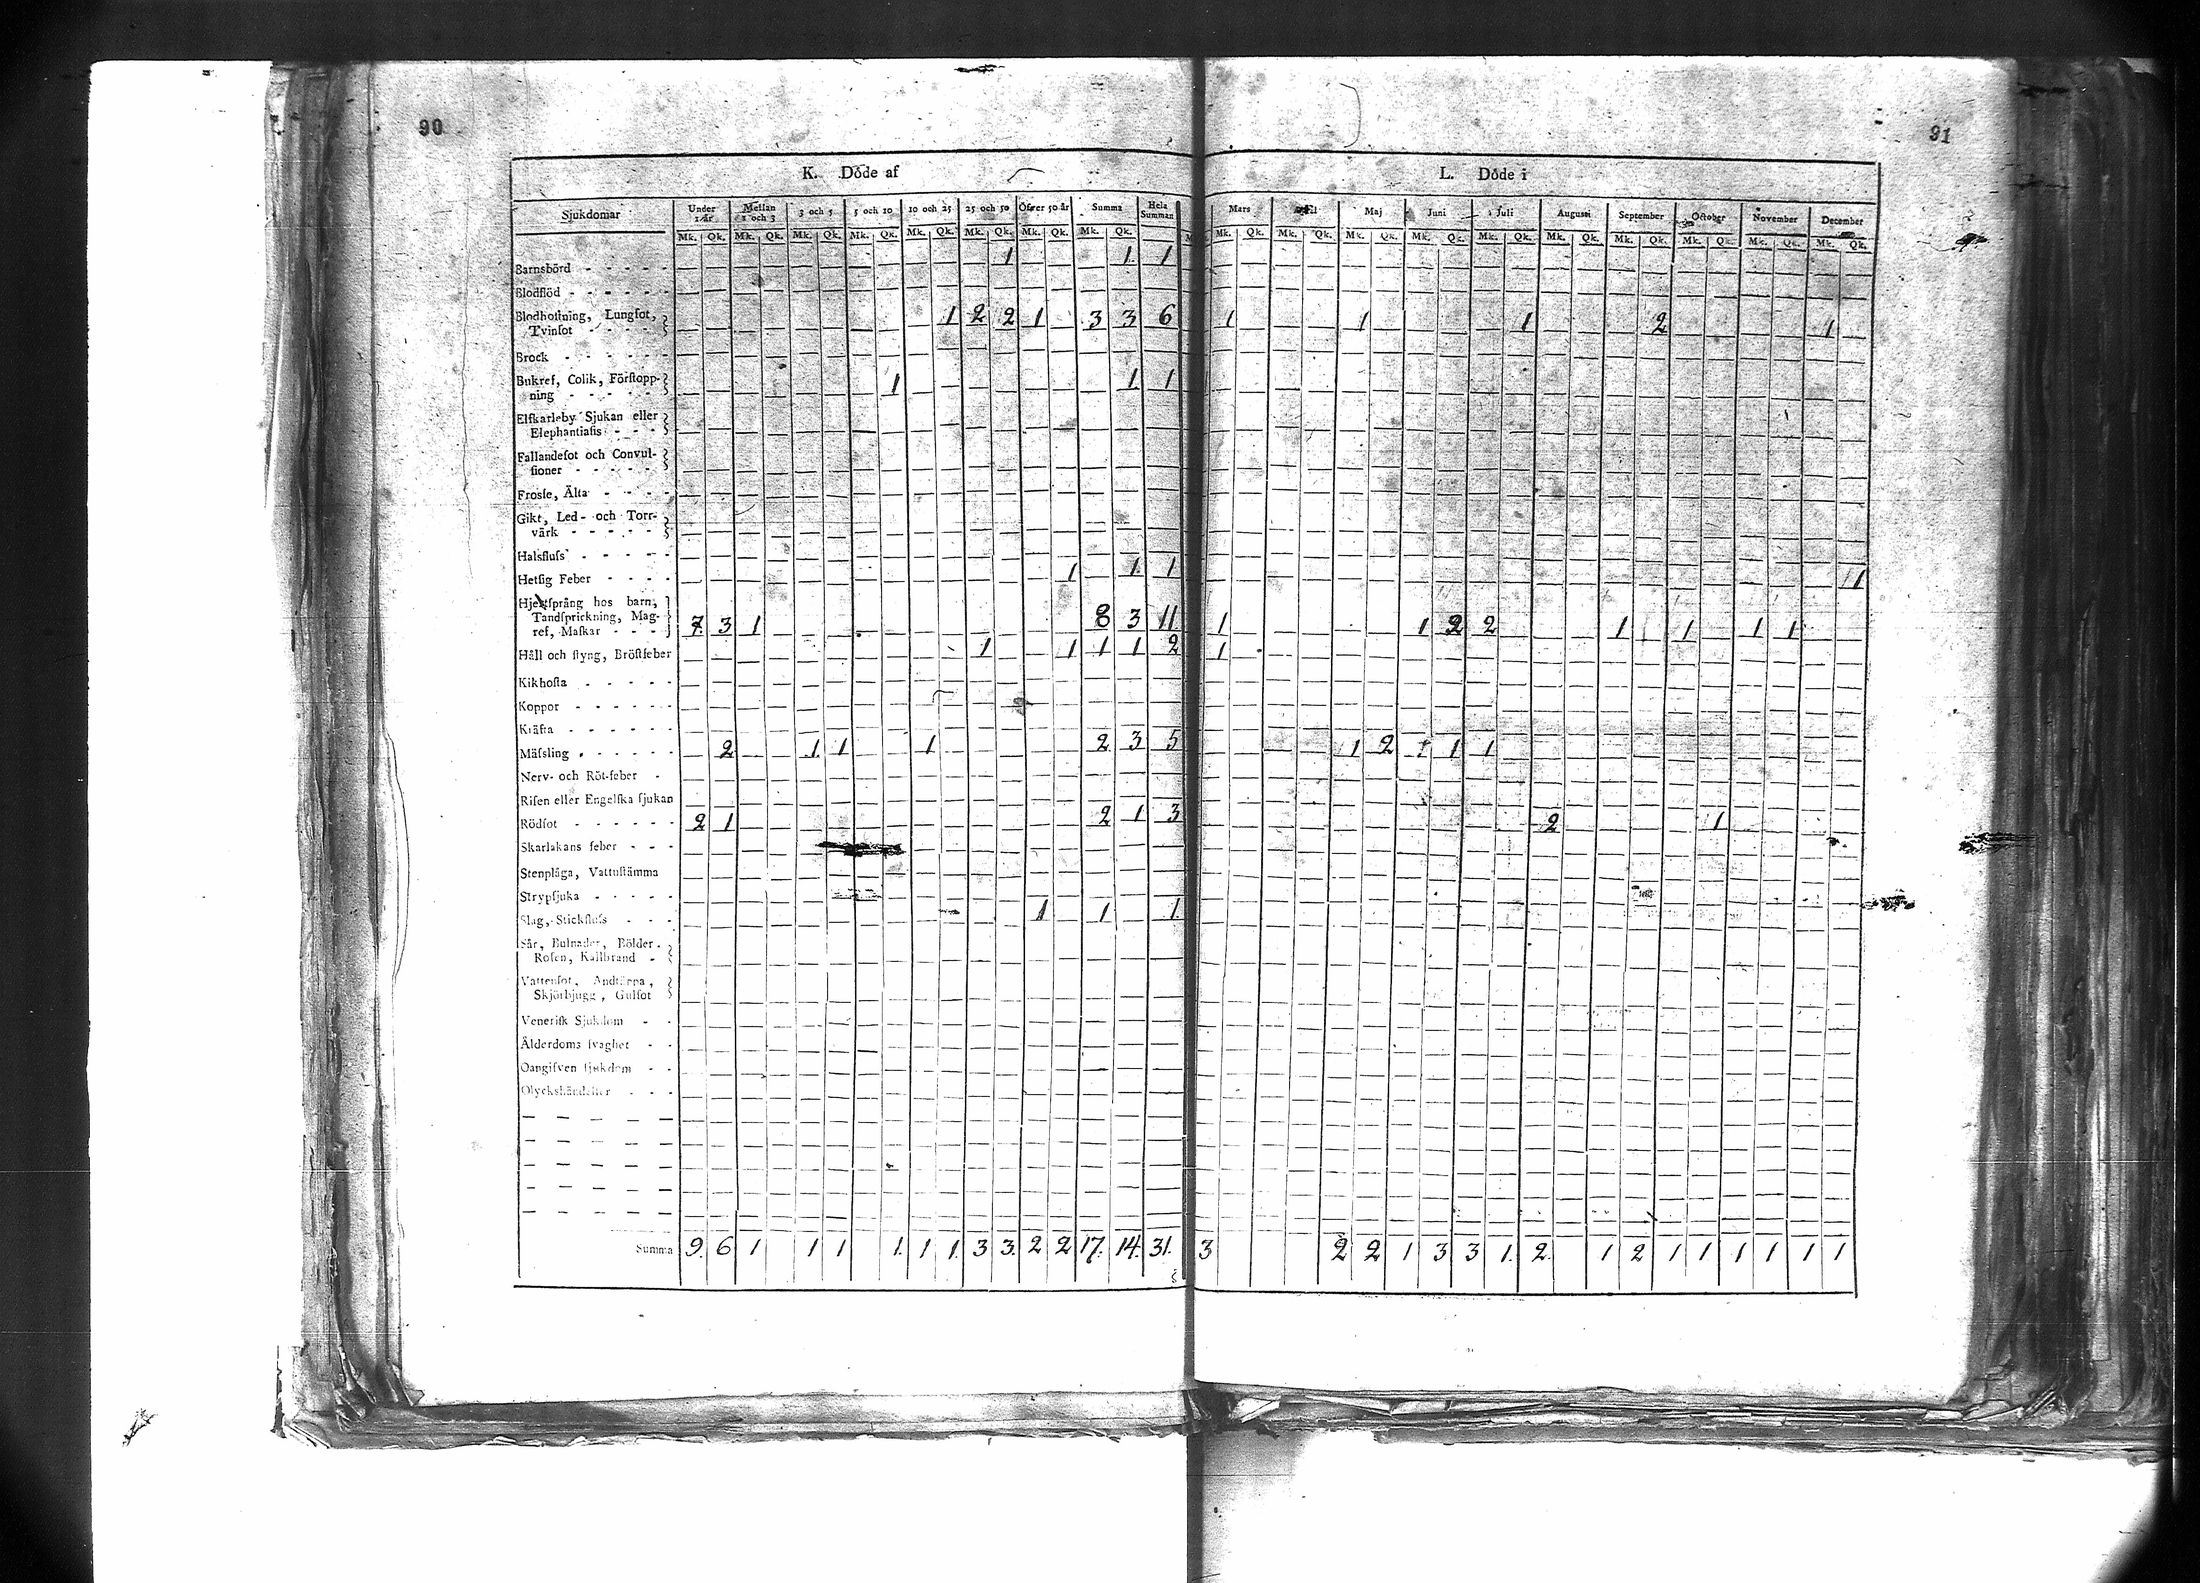 90
91
K. Döde af
L. Döde i
Sjukdomar Under 1 år Mellan 1 och 3 3 och 5 5 och 10 10 och 25 25 och 50 Öfver 50 år Summa Hela Summan Mars Maj Juni Juli Augusti September October November December
Mk. Qk. Mk. Qk. Mk. Qk. Mk. Qk. Mk. Qk. Mk. Qk. Mk. Qk. Mk. Qk. Mk. Qk. Mk. Qk. Mk. Qk. Mk. Qk. Mk. Qk. Mk. Qk. Mk. Qk. Mk. Qk. Mk. Qk. Mk. Qk.
Barnsbörd - - - - - 1 1 1
Blodflöd - - - - - -
Blodhostning, Lungsot,
Tvinsot - - - - 1 2 2 1 3 3 6 1 1 1 2 1
Brock - - - - - -
Bukref, Colik, Förstopp-
ning - - - - - 1 1 1
Elfkarleby Sjukan eller
Elephantiasis - - -
Fallandesot och Convul-
sioner - - - - -
Frosse, Älta - - - -
Gikt, Led- och Torr-
värk - - - - -
Halsfluss - - - - -
Hetsig Feber - - - - 1 1 1 1
Hjertsprång hos barn,
Tandsprickning, Mag-
ref, Maskar - - - 7 3 1 8 3 11 1 1 2 2 1 1 1 1
Håll och styng, Bröstfeber 1 1 1 1 2 1
Kikhosta - - - - -
Koppor - - - - - -
Kräfta - - - - - -
Mässling - - - - - 2 1 1 1 2 3 5 1 2 1 1
Nerv- och Röt-feber -
Risen eller Engelska sjukan
Rödsot - - - - - - 2 1 2 1 3 2 1
Skarlakans feber - - -
Stenplåga, Vattustämma
Strypsjuka - - - - -
Slag, Stickfluss - - - 1 1 1
Sår, Bulnader, Bölder,
Rosen, Kallbrand -
Vattensot, Andtäppa,
Skjörbjugg, Gulsot
Venerisk Sjukdom - -
Ålderdoms svaghet - -
Oangifven sjukdom - -
Olyckshändelser - - -
Summa 9. 6 1 1 1 1. 1 1. 3 3. 2 2 17. 14. 31. 3 2 2 1 3 3 1. 2. 1 2 1 1 1 1 1 1